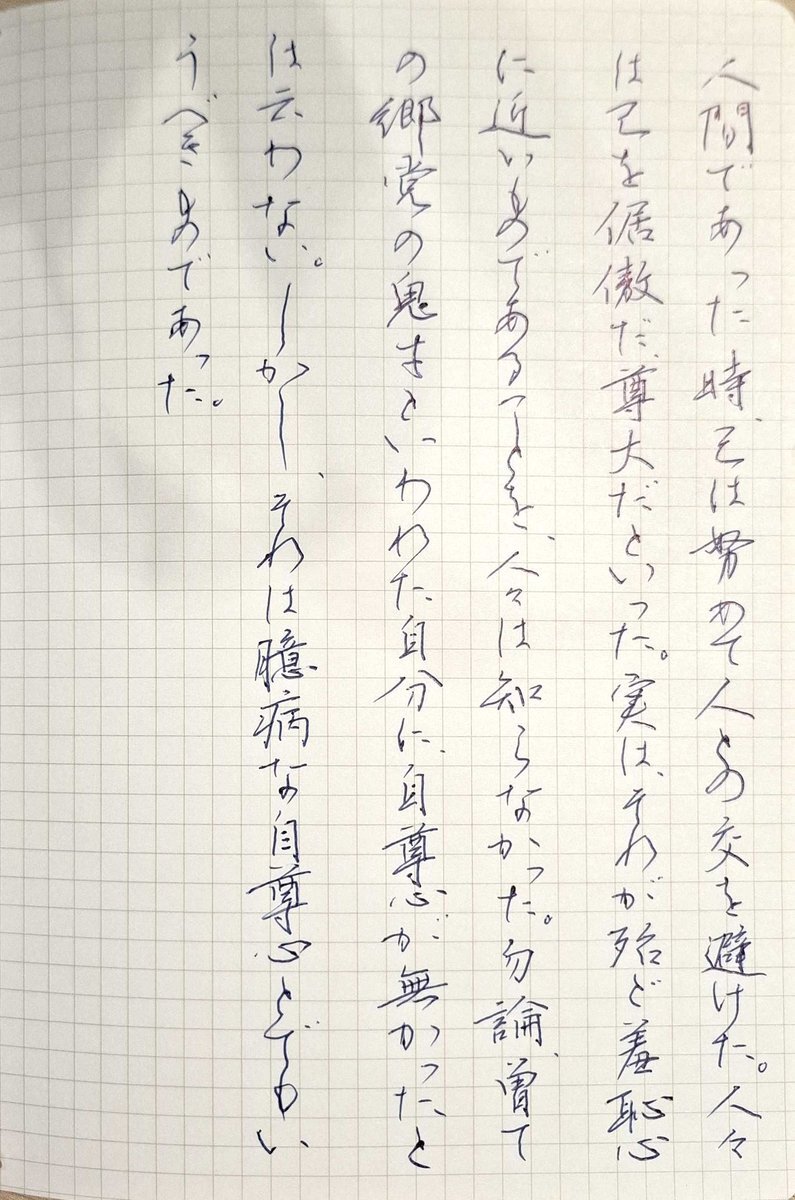 人間であった時、己は努めて人との交を避けた。人々
は己を倨傲だ、尊大だといった。実は、それが殆ど羞恥心
に近いものであることを、人々は知らなかった。勿論、曽て
の郷党の鬼才といわれた自分に、自尊心が無かったと
は云わない。しかし、それは臆病な自尊心とでもい
うべきものであった。